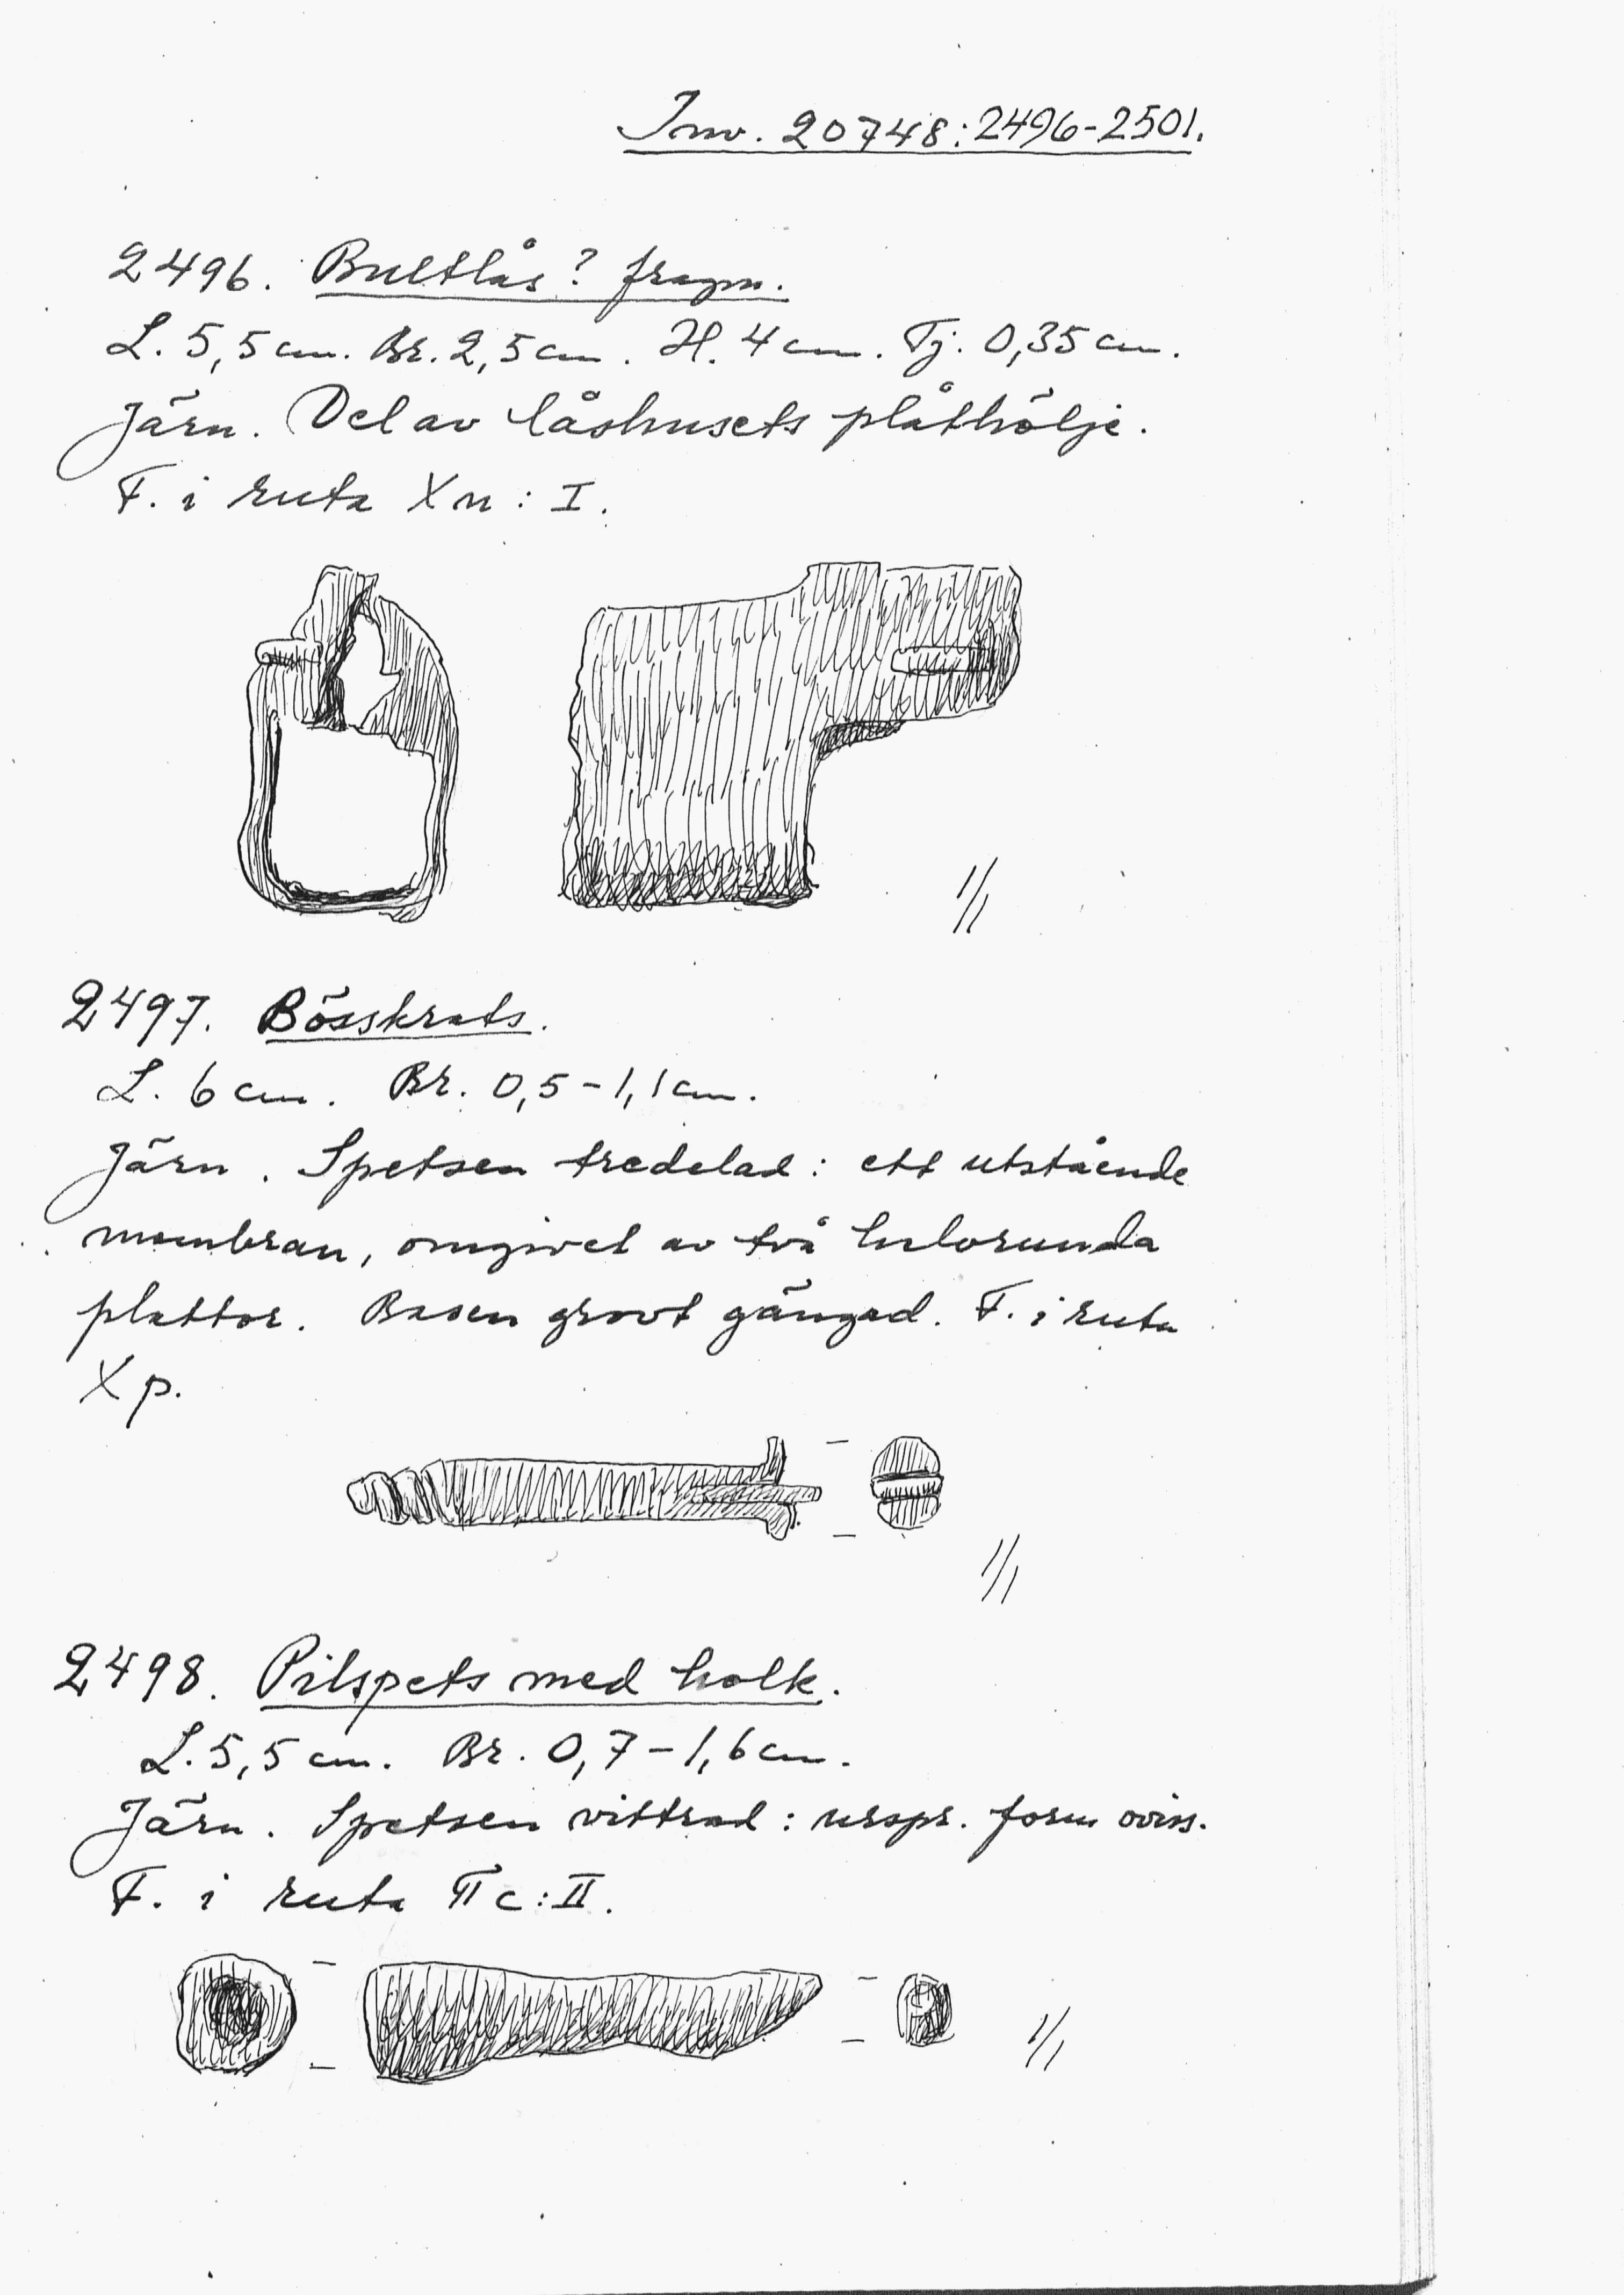 Inv. 20748:2496-2501.
2496. Bultlås? fragm.
L. 5,5 cm. Br. 2,5 cm. H. 4 cm. Tj. 0,35 cm.
Järn. Del av låshusets plåthölje.
F. i ruta X n : I.
1/1
2497. Bösskrats.
L. 6 cm. Br. 0,5 - 1,1 cm.
Järn. Spetsen tredelad : ett utstående
membran, omgivet av två halvrunda
plattor. Basen grovt gängad. F. i ruta
X p.
1/1
2498. Pilspets med holk.
L. 5,5 cm. Br. 0,7 - 1,6 cm.
Järn. Spetsen vittrad : urspr. form oviss.
F. i ruta c : II.
1/1